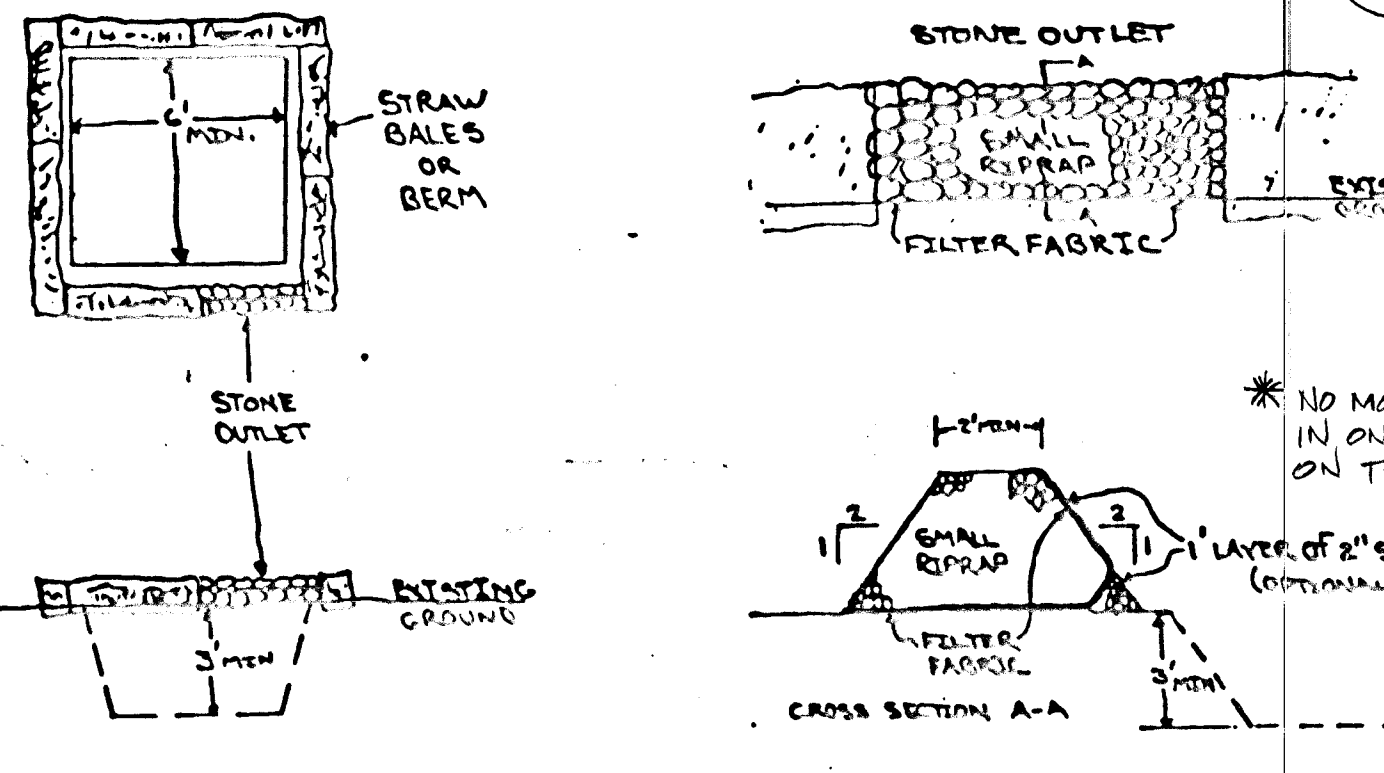 6'
MIN.
STRAW
BALES
OR
BERM
STONE
OUTLET
EXISTING
GROUND
3' MIN
STONE OUTLET
A
SMALL
RIPRAP
A
FILTER FABRIC
* NO
IN
ON
2' MIN
2
1
SMALL
RIPRAP
2
1
1' LAYER OF 2"
(OPTIONAL
FILTER
FABRIC
3' MIN
CROSS SECTION A-A